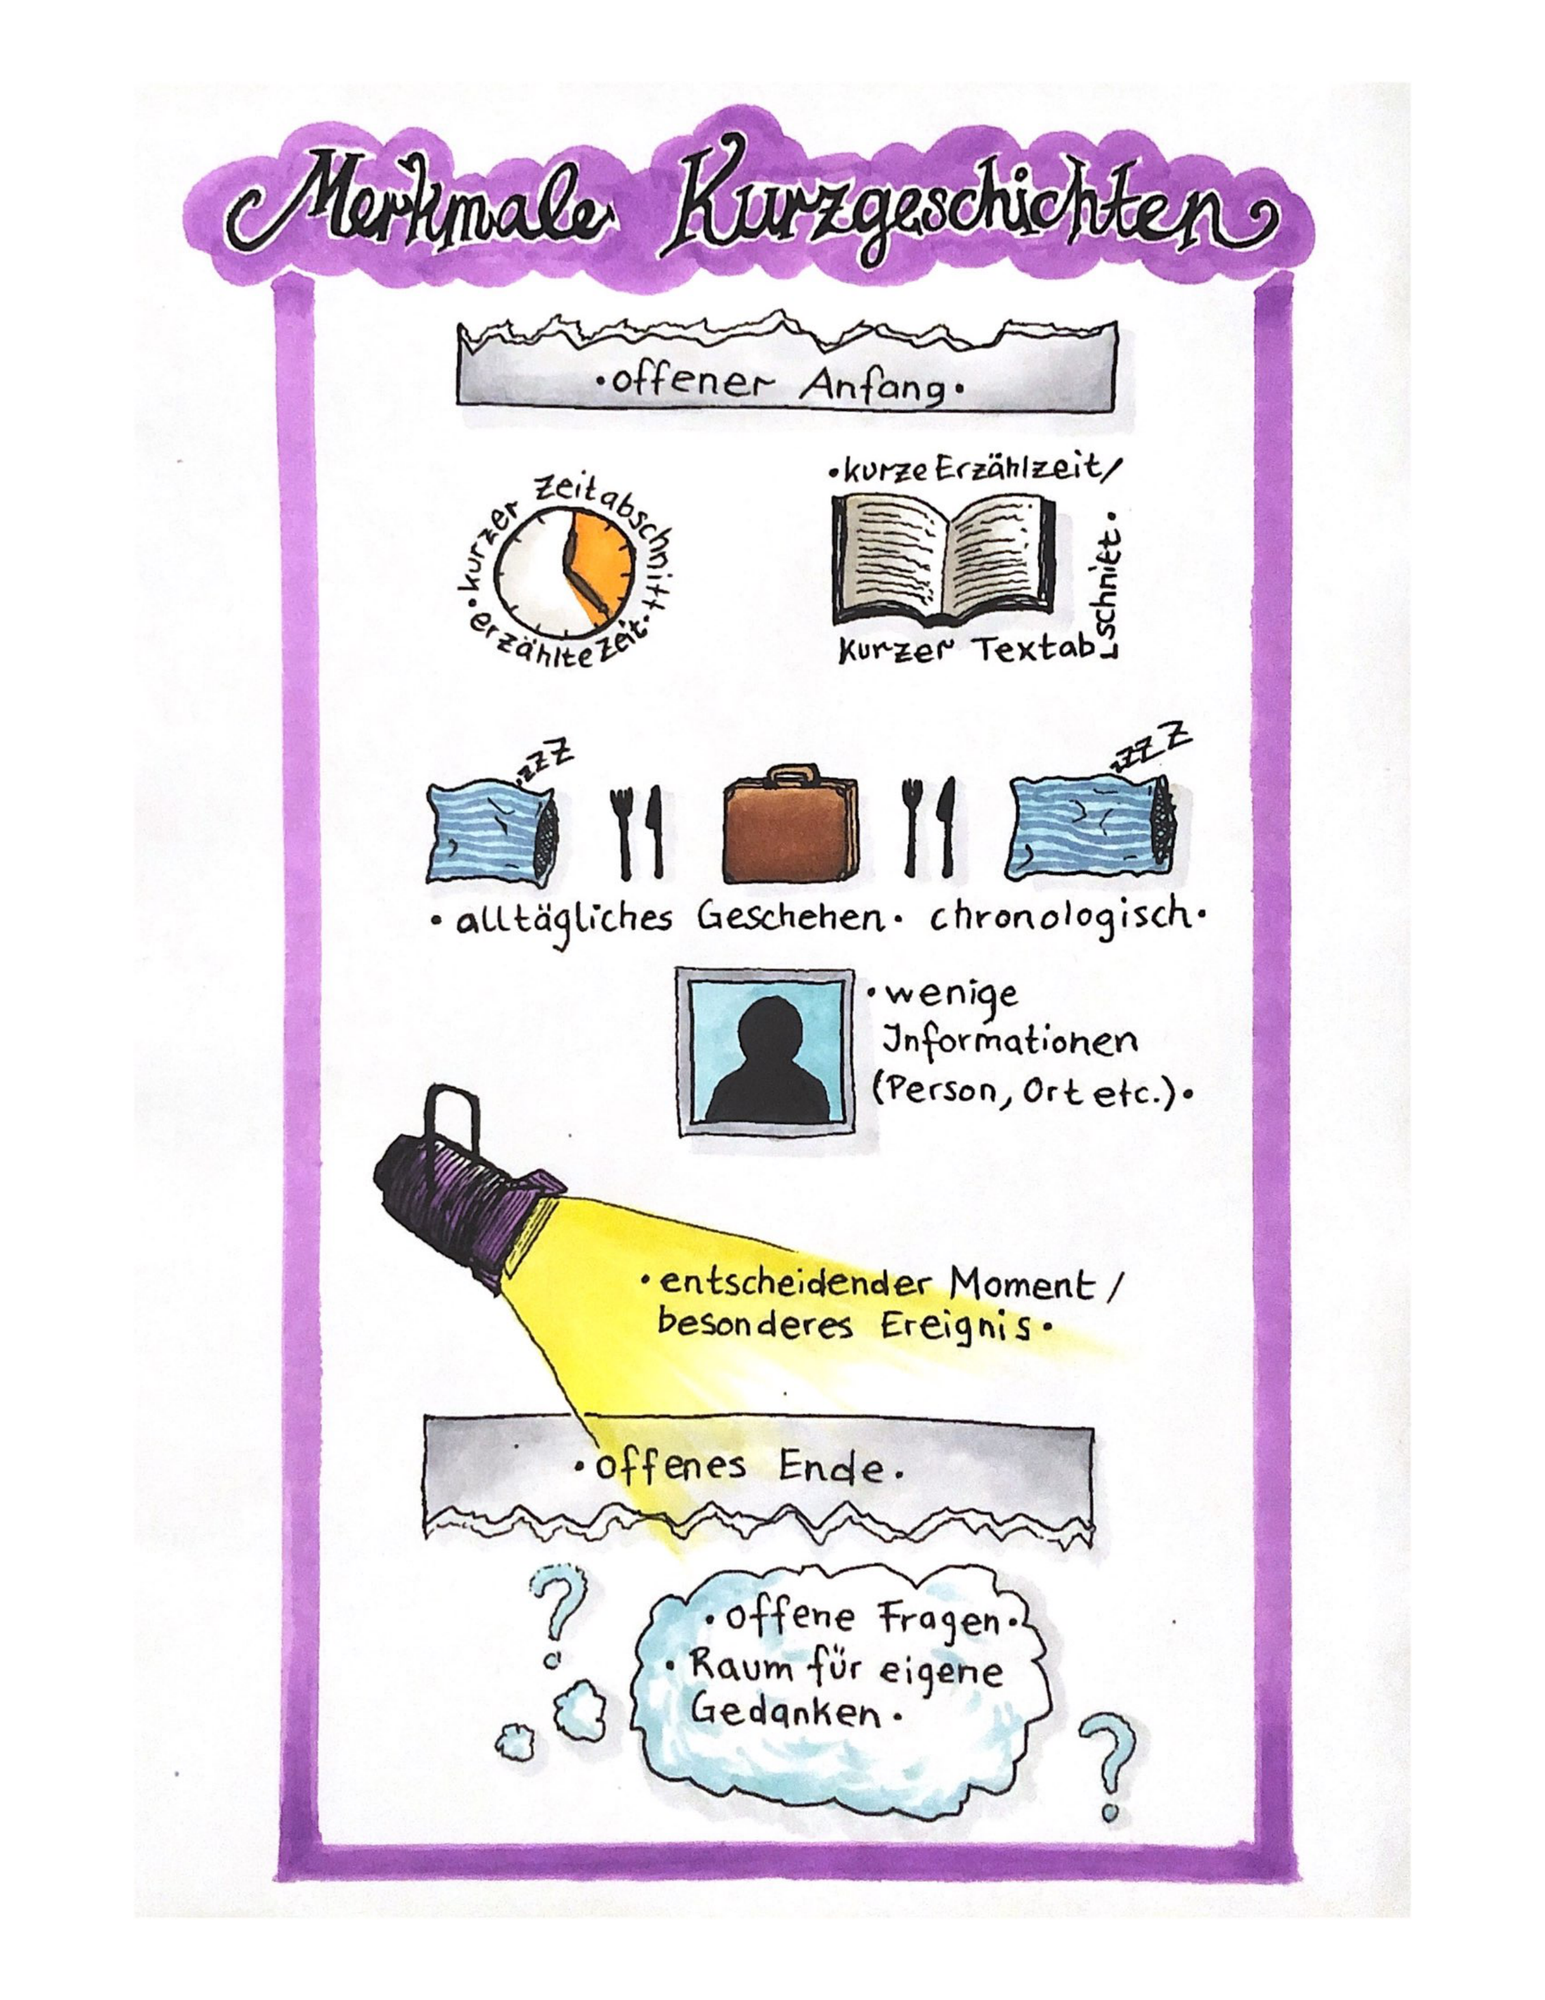 Merkmale Kurzgeschichten
•offener Anfang•
•kurzer Zeitabschnitt•
erzählte Zeit
•kurze Erzählzeit/
Kurzer Textab
schnitt•
zzZ
zzZ
•alltägliches Geschehen• chronologisch•
•wenige
Informationen
(Person, Ort etc.)•
•entscheidender Moment/
besonderes Ereignis•
•offenes Ende•
?
•offene Fragen•
•Raum für eigene
Gedanken•
?